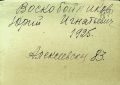 Воскобойников
Юрий Игнатьевич
1925.
Алексеевск 83.